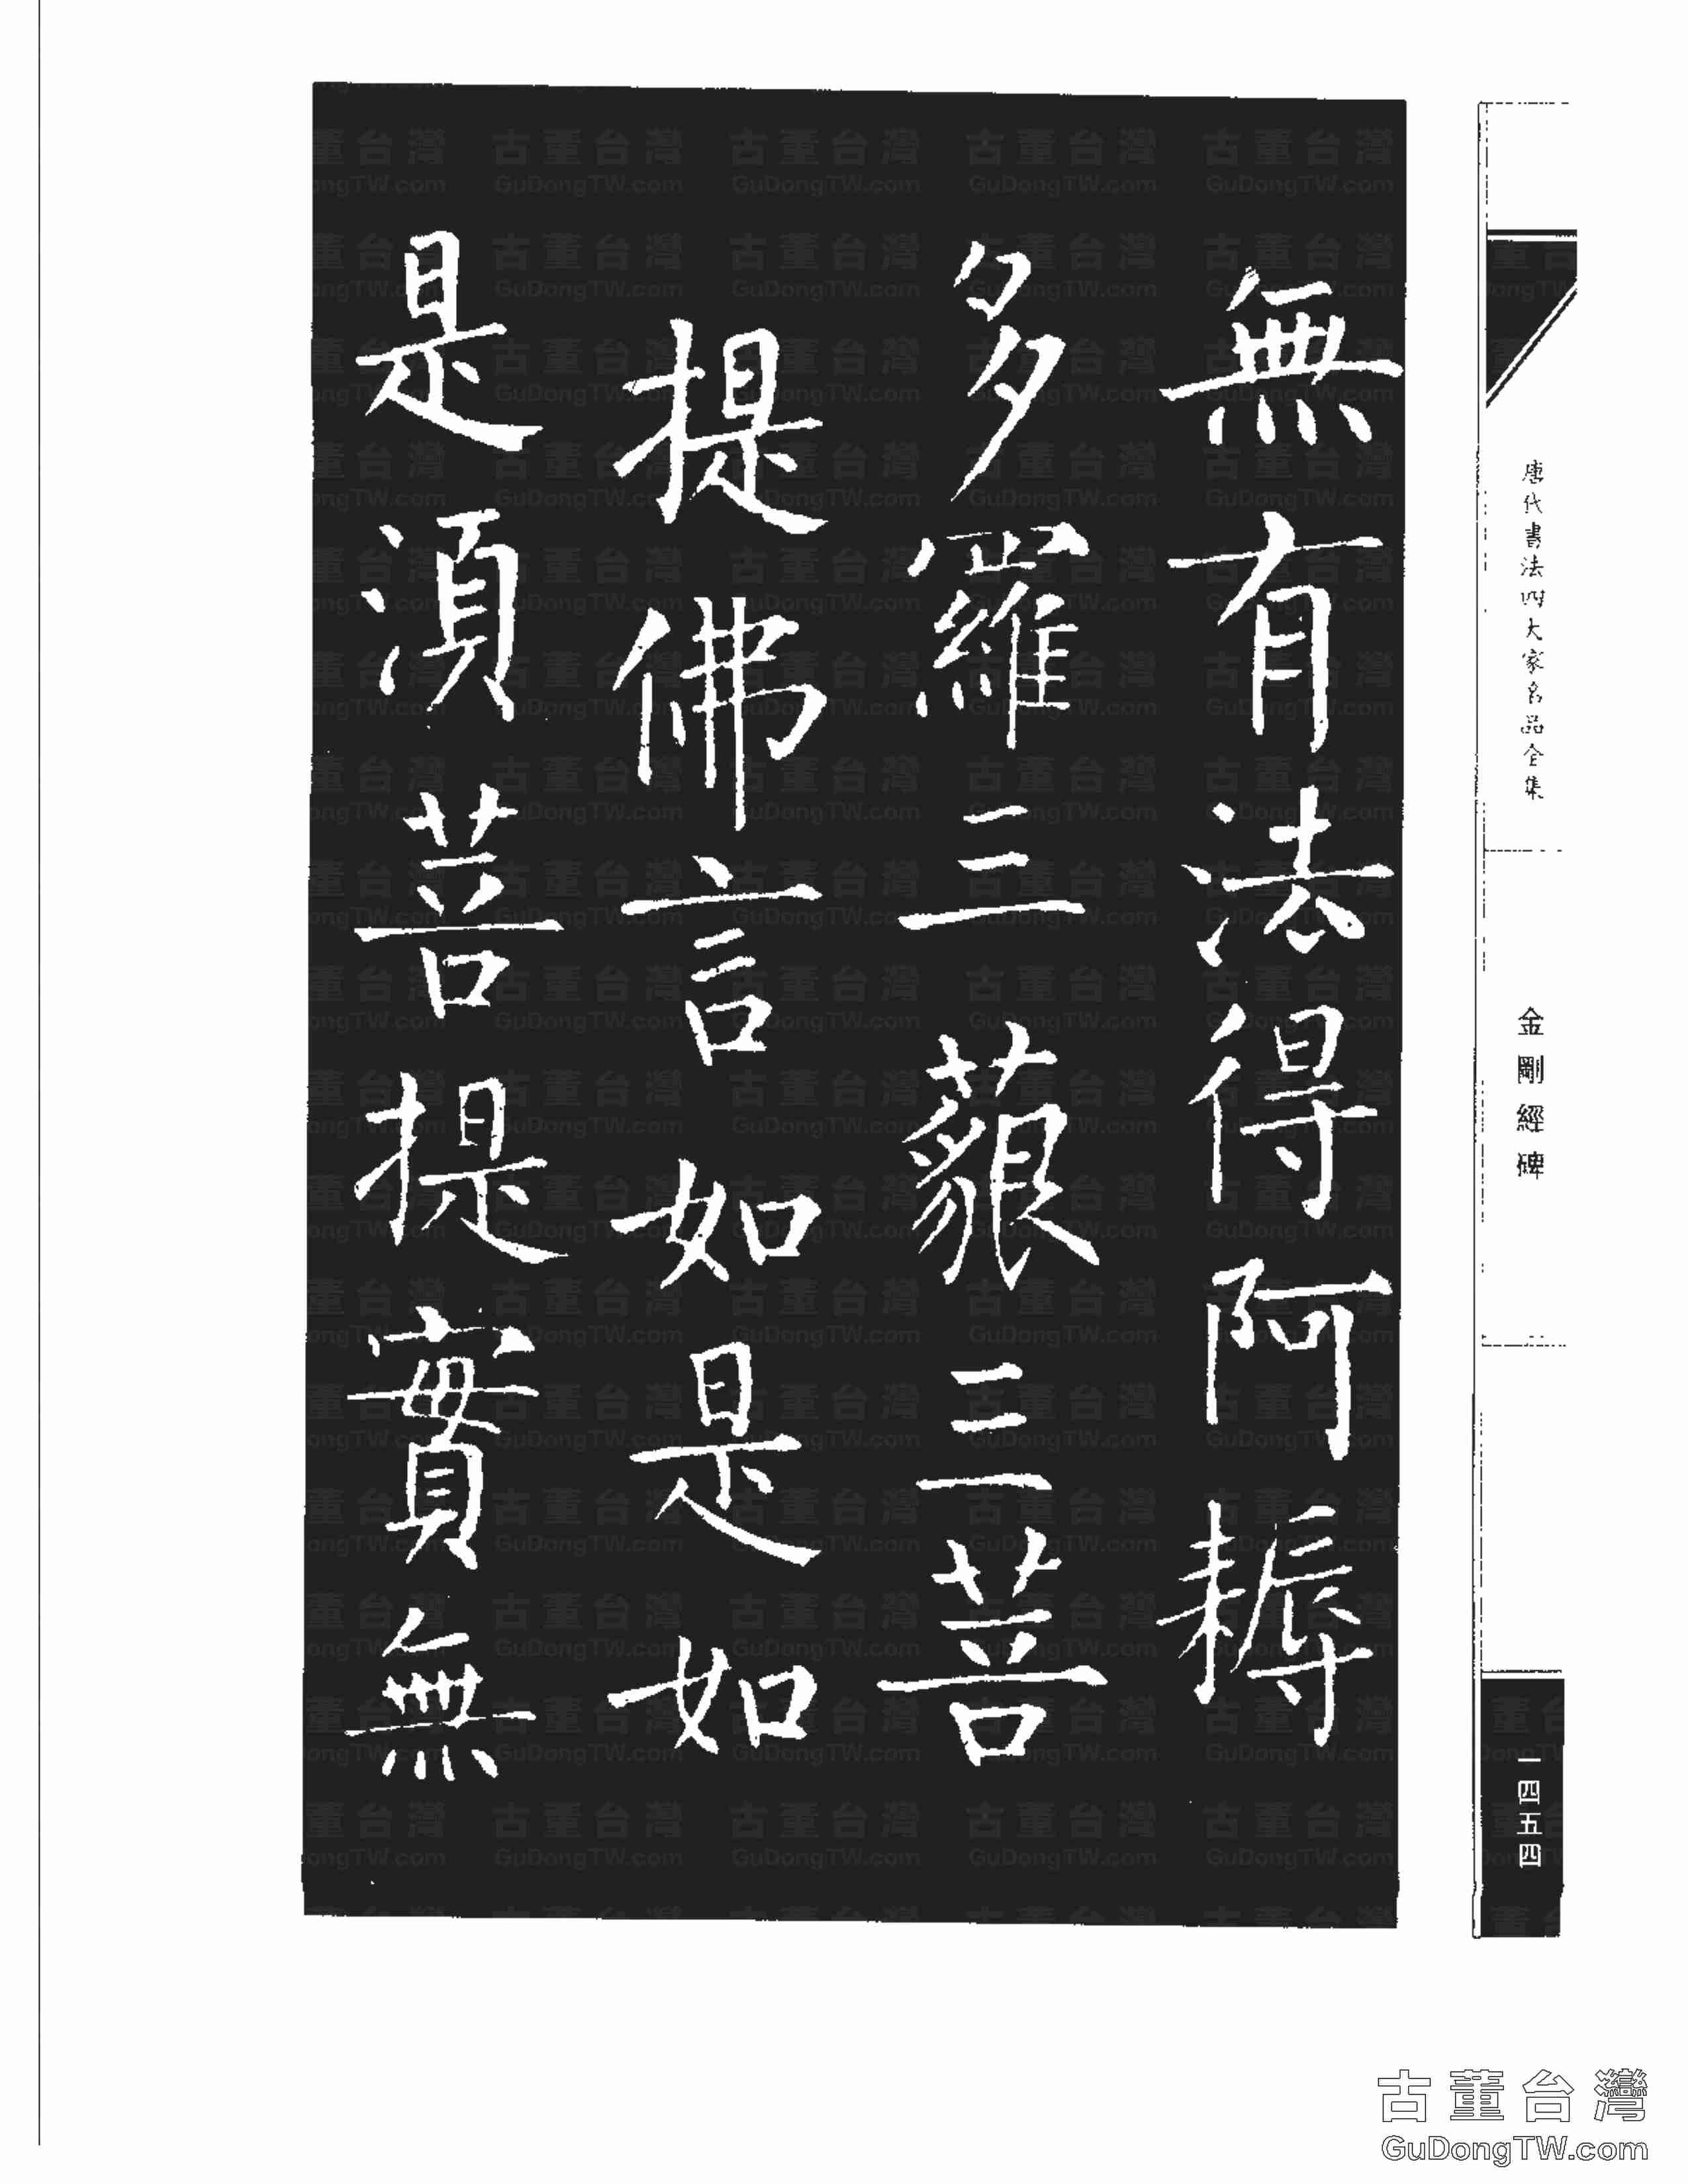 無有法得阿耨
多羅三藐三菩
提佛言如是如
是湏菩提實無
唐代書法四大家名品全集
金剛經碑
一四五四
古董台灣
GuDongTW.com